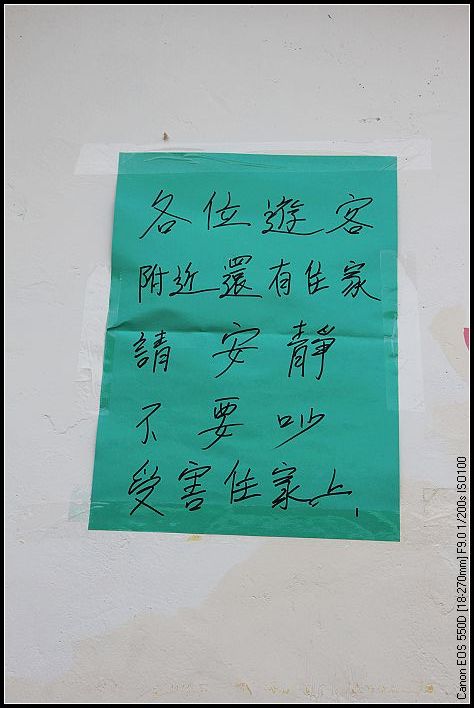 各位遊客
附近還有住家
請安靜
不要吵
受害住家上
Canon EOS 550D [18-270mm] F9.0 1/200s ISO100